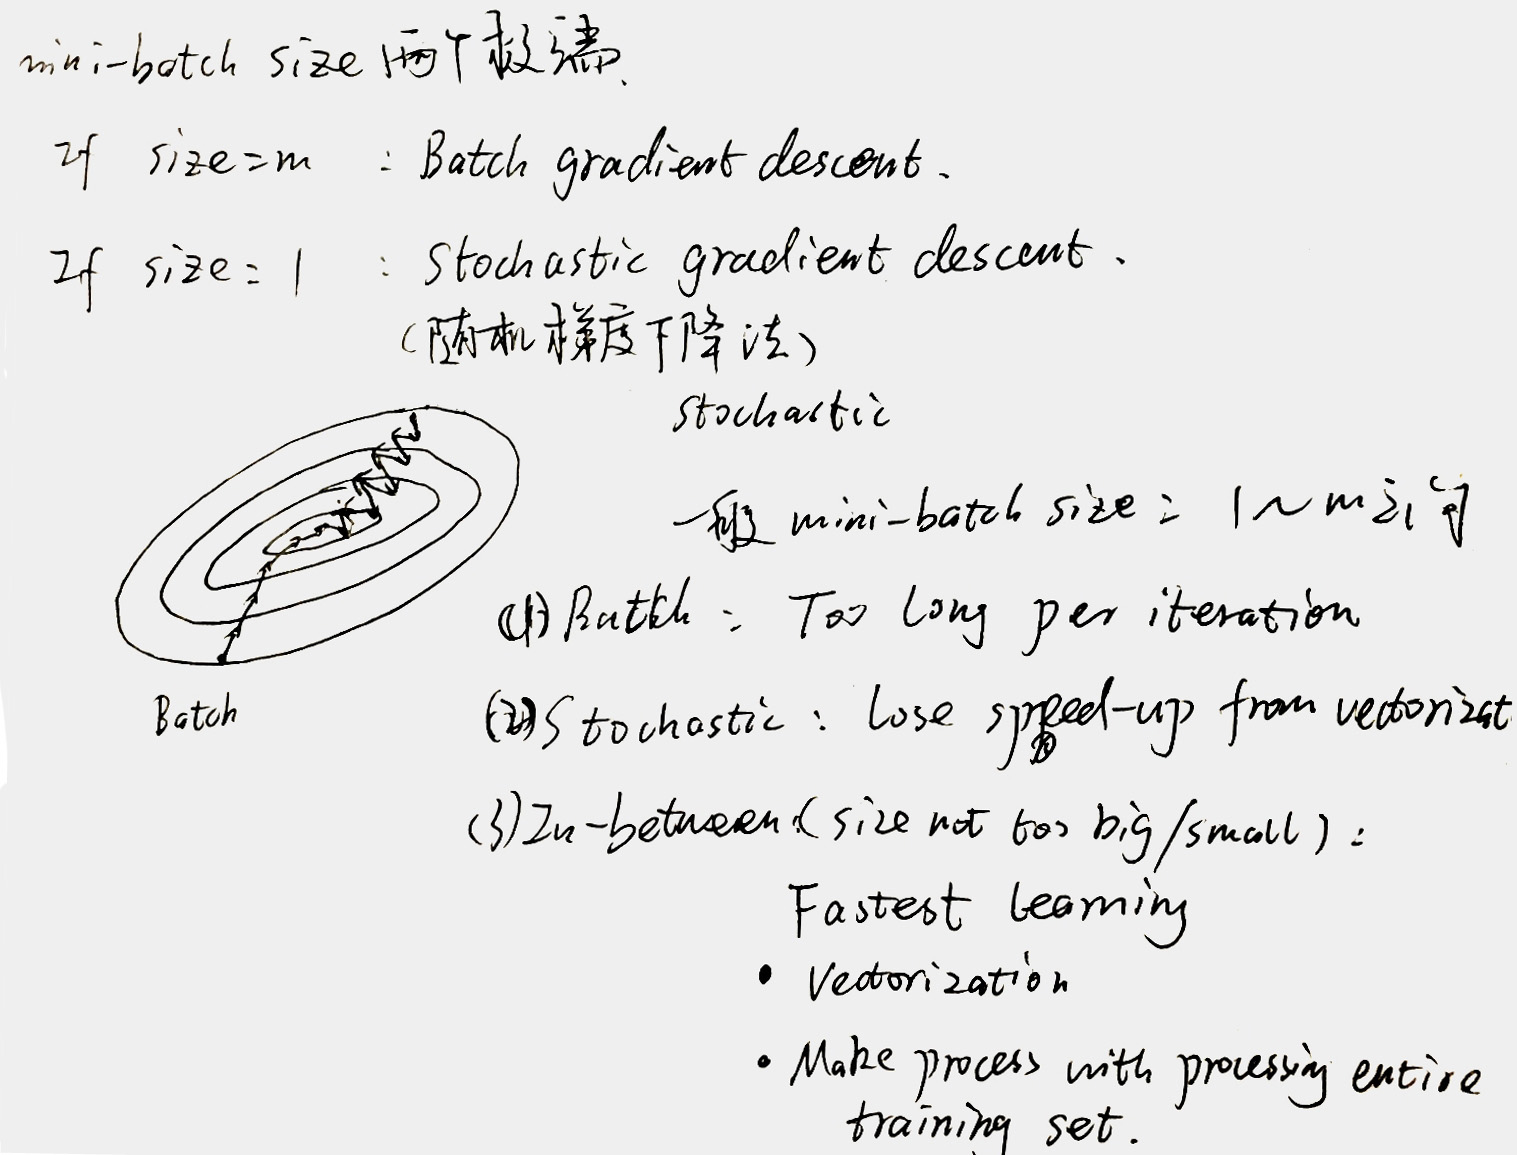 mini-batch size 两个极端.
If size=m : Batch gradient descent.
If size=1 : Stochastic gradient descent.
(随机梯度下降法)
Stochastic
一般 mini-batch size: 1~m之间
Batch
(1) Batch: Too long per iteration
(2) Stochastic: Lose speed-up from vectorizat
(3) In-between (size not too big/small):
Fastest learning
• Vectorization
• Make process with processing entire
training set.